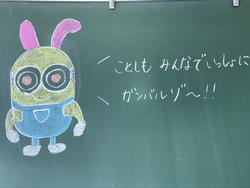 ことしも みんなでいっしょに
ガンバルゾ〜!!